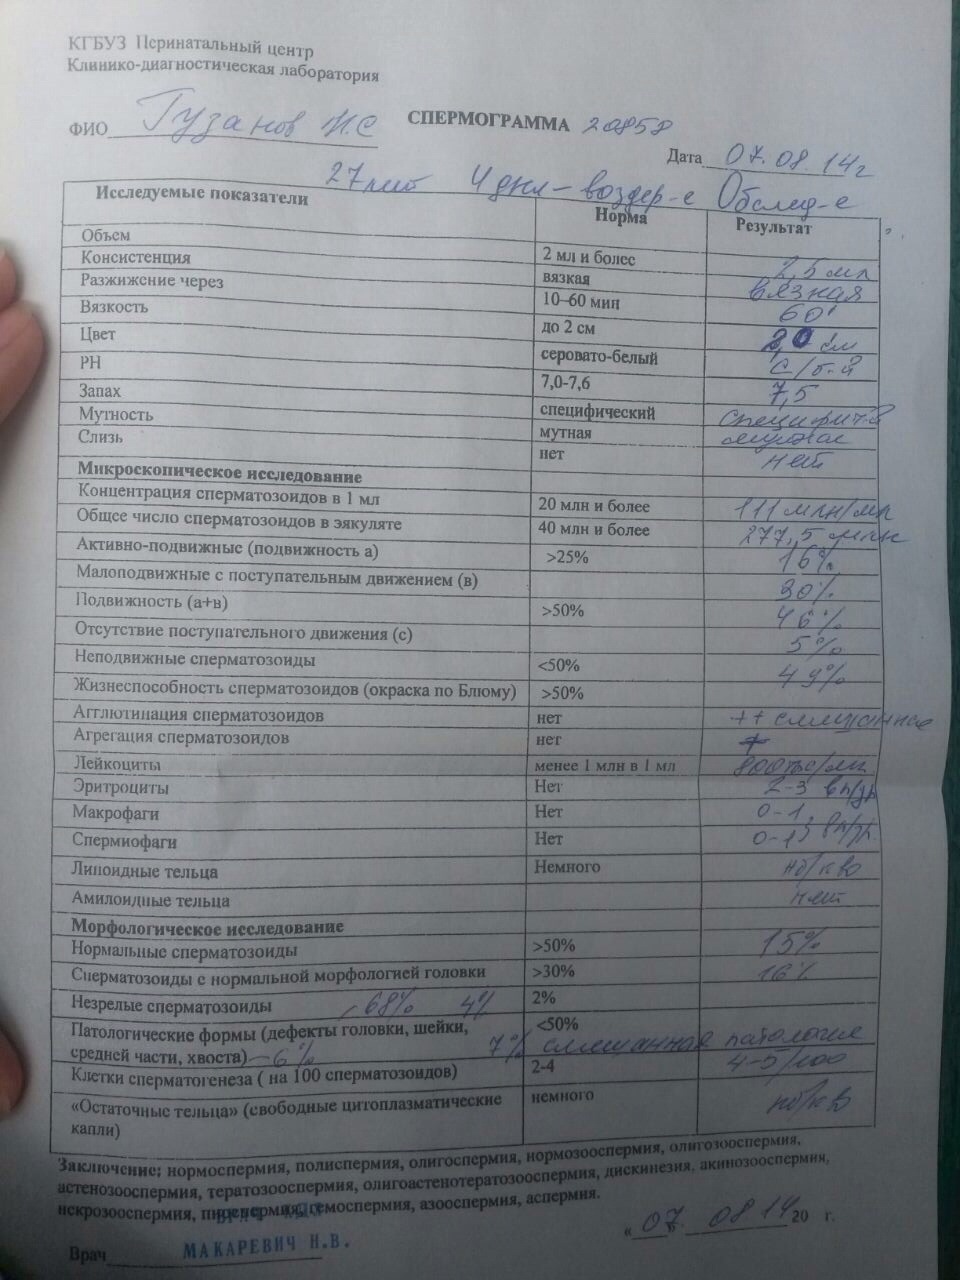 КГБУЗ Перинатальный центр
Клинико-диагностическая лаборатория
ФИО Гузанов И.С СПЕРМОГРАММА 20858
Дата 07.08.14г
27 лет 4 дня-воздер-е Обслед-е
Исследуемые показатели Норма Результат
Объем 2 мл и более 2,5 мл
Консистенция вязкая вязкая
Разжижение через 10–60 мин 60'
Вязкость до 2 см 2,0 см
Цвет серовато-белый с/б-й
РН 7,0-7,6 7,5
Запах специфический специфич-й
Мутность мутная мутная
Слизь нет нет
Микроскопическое исследование
Концентрация сперматозоидов в 1 мл 20 млн и более 111 млн/мл
Общее число сперматозоидов в эякуляте 40 млн и более 277,5 млн
Активно-подвижные (подвижность а) >25% 16%
Малоподвижные с поступательным движением (в) 30%
Подвижность (а+в) >50% 46%
Отсутствие поступательного движения (с) 5%
Неподвижные сперматозоиды <50% 49%
Жизнеспособность сперматозоидов (окраска по Блюму) >50%
Агглютинация сперматозоидов нет ++ смешанная
Агрегация сперматозоидов нет +
Лейкоциты менее 1 млн в 1 мл 800тыс/мл
Эритроциты Нет 2-3 в п/зр
Макрофаги Нет 0-1
Спермиофаги Нет 0-1 в п/зр.
Липоидные тельца Немного нб/кво
Амилоидные тельца нет
Морфологическое исследование
Нормальные сперматозоиды >50% 15%
Сперматозоиды с нормальной морфологией головки >30% 16%
Незрелые сперматозоиды 68% 4% 2%
Патологические формы (дефекты головки, шейки, <50%
средней части, хвоста) – 6% 7% смешанная патология
Клетки сперматогенеза ( на 100 сперматозоидов) 2-4 4-5/100
«Остаточные тельца» (свободные цитоплазматические немного нб/кв
капли)
Заключение: нормоспермия, полиспермия, олигоспермия, нормозооспермия, олигозооспермия,
астенозооспермия, тератозооспермия, олигоастенотератозооспермия, дискинезия, акинозооспермия,
некрозооспермия, пиоспермия, гемоспермия, азооспермия, аспермия.
«07» 08 14 20 г.
Врач МАКАРЕВИЧ Н.В.